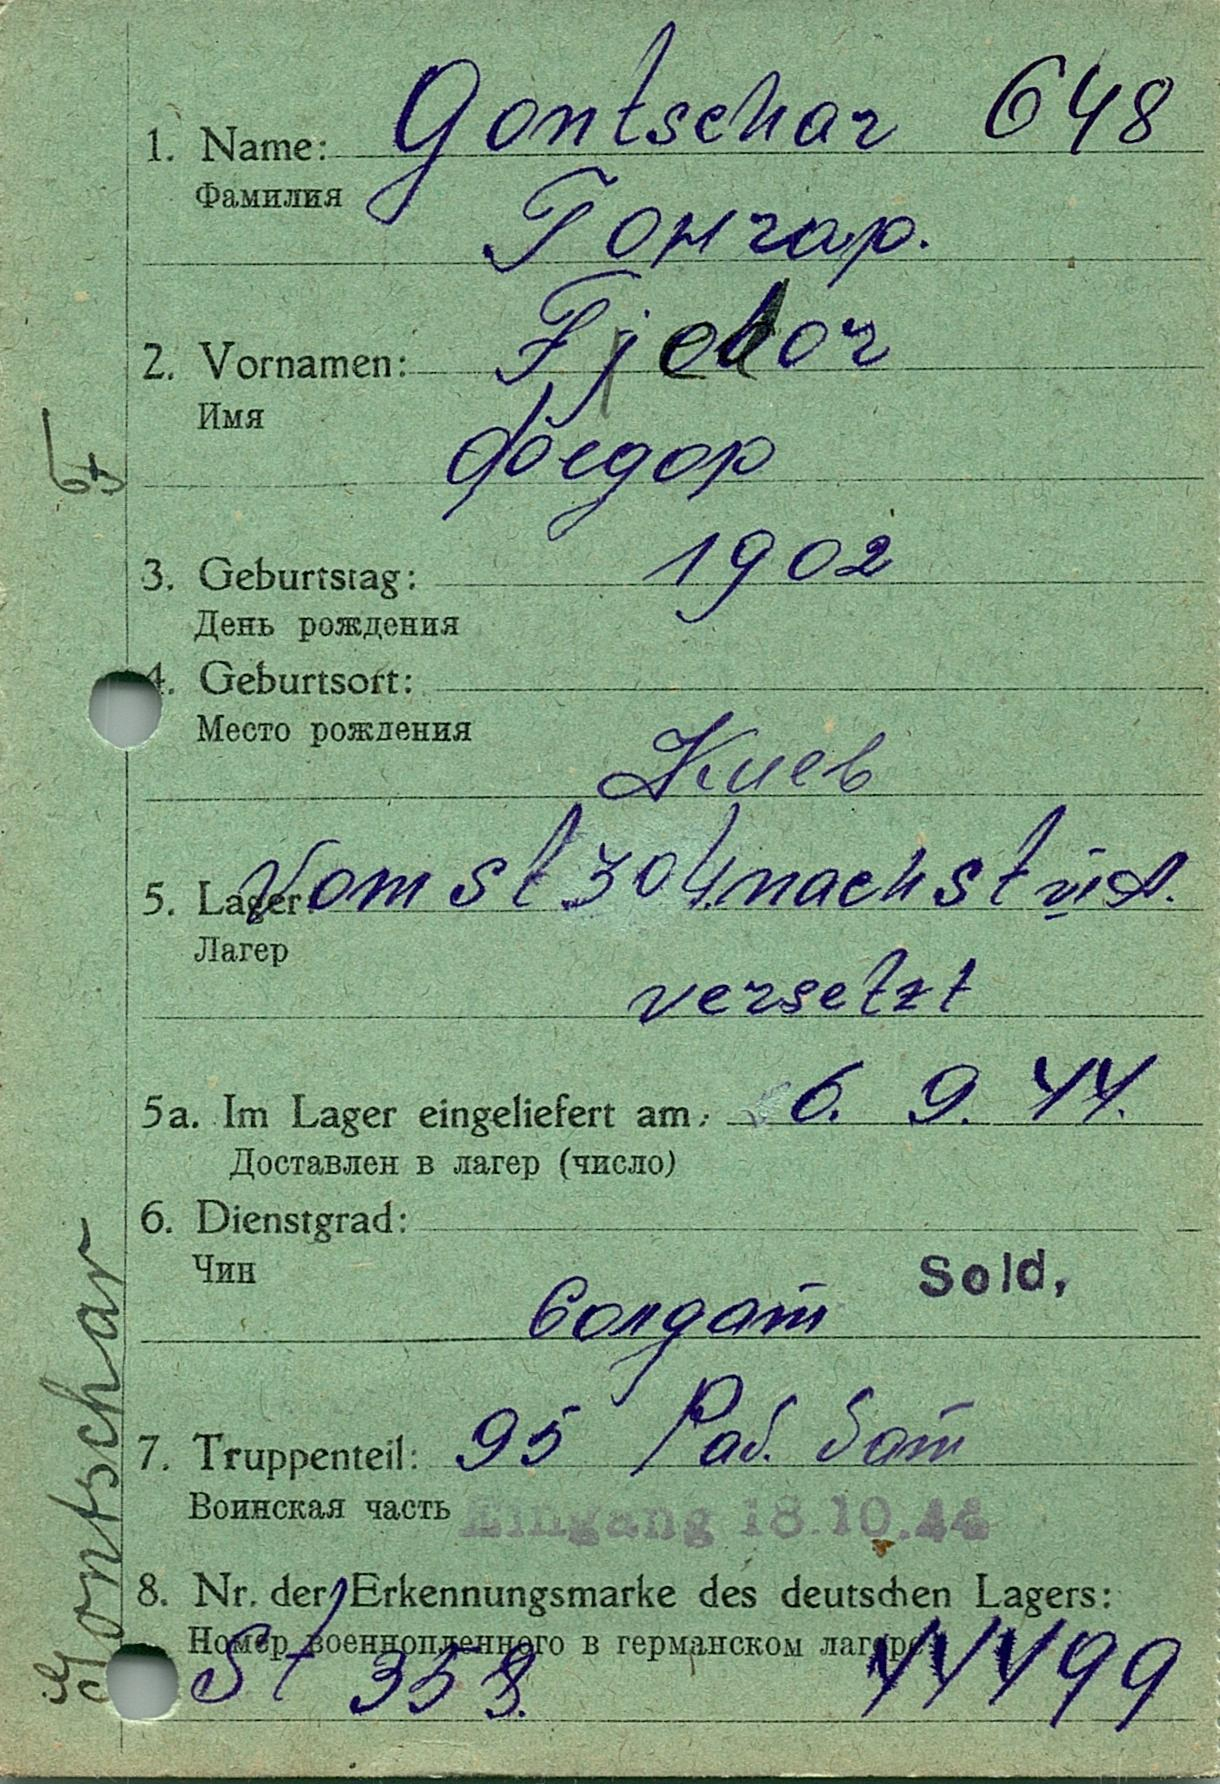 1. Name: Gontschar 648
Фамилия
Гончар.
2. Vornamen: Fjedor
Имя
Фёедор
3. Geburtstag: 1902
День рождения
4. Geburtsort:
Место рождения
Киев
5. Lager: Vom St 304 nach St VI A.
Лагер
versetzt
5a. Im Lager eingeliefert am: 6. 9. 44.
Доставлен в лагер (число)
6. Dienstgrad:
Чин
Sold,
Солдат
7. Truppenteil: 95 Раб. бат
Воинская часть
Eingang 18.10.44
8. Nr. der Erkennungsmarke des deutschen Lagers:
Номер военнопленного в германском лагере
St 358.
Gontschar